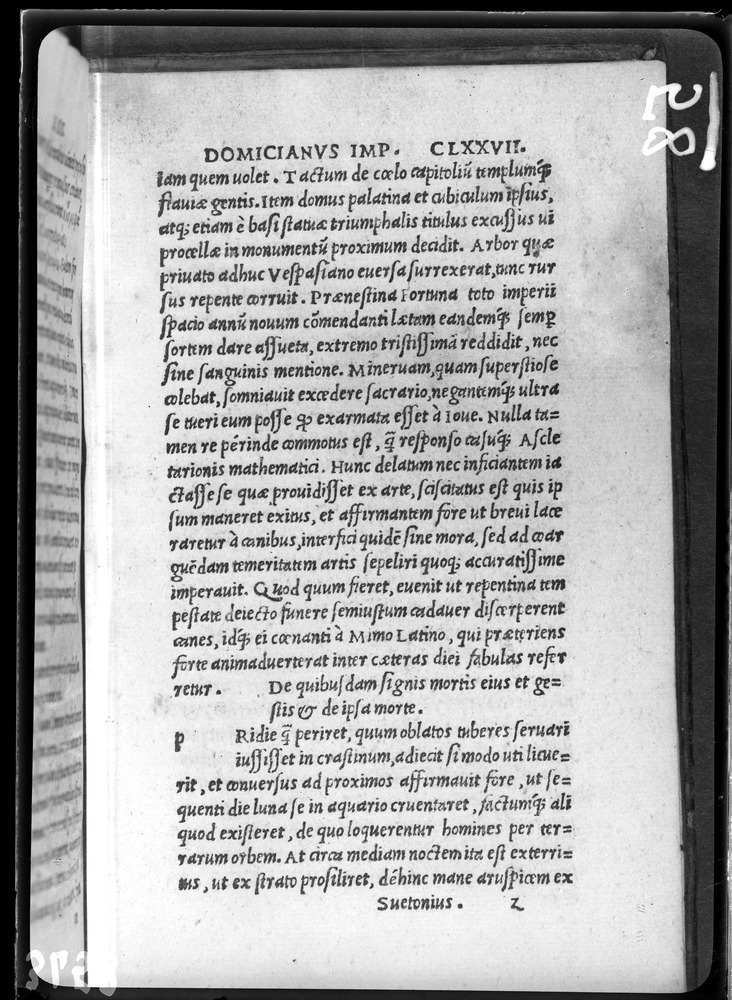 DOMICIANVS IMP. CLXXVII.
Iam quem uolet. Tactum de cœlo capitoliũ templumq́;
flauiæ gentis. Item domus palatina et cubiculum ipsius,
atq; etiam è basi statuæ triumphalis titulus excussus ui
procellæ in monumentũ proximum decidit. Arbor quæ
priuato adhuc Vespasiano euersa surrexerat, tunc rur
sus repente corruit. Prænestina Fortuna toto imperii
spacio annũ nouum cõmendanti lætam eandemq́; semꝑ
sortem dare assueta, extremo tristissimã reddidit, nec
sine sanguinis mentione. Mineruam, quam superstiose
colebat, somniauit excedere sacrario, negantemq́; ultra
se tueri eum posse ꝙ exarmata esset à Ioue. Nulla ta=
men re périnde commotus est, q̃ responso casuq́; Ascle
tarionis mathematici. Hunc delatum nec inficiantem ia
ctasse se quæ prouidisset ex arte, sciscitatus est quis ip
sum maneret exitus, et affirmantem fore ut breui lace
raretur à canibus, interfici quidẽ sine mora, sed ad coar
guẽdam temeritatem artis sepeliri quoq; accuratissime
imperauit. Quod quum fieret, euenit ut repentina tem
pestate deiecto funere semiustum cadauer discerperent
canes, idq́; ei cœnanti à Mimo Latino, qui præteriens
forte animaduerterat inter cæteras diei fabulas refer
retur. De quibusdam signis mortis eius et ge=
stis & de ipsa morte.
p Ridie q̃ periret, quum oblatos tuberes seruari
iussisset in crastinum, adiecit si modo uti licue=
rit, et conuersus ad proximos affirmauit fore, ut se=
quenti die luna se in aquario cruentaret, factumq́; ali
quod existeret, de quo loquerentur homines per ter=
rarum orbem. At circa mediam noctem ita est exterri=
tus, ut ex strato prosiliret, dẽhinc mane aruspicem ex
Suetonius. z